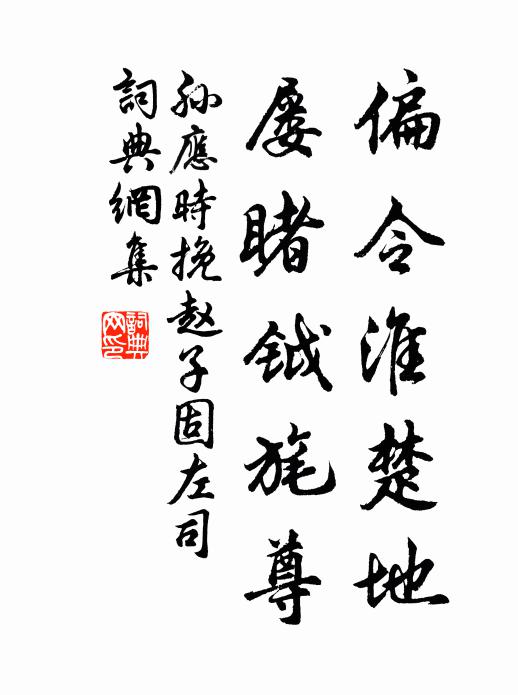 偏令淮楚地
屡睹钺旄尊
孙應時挽赵子固左司
詞典網集
詞典网印